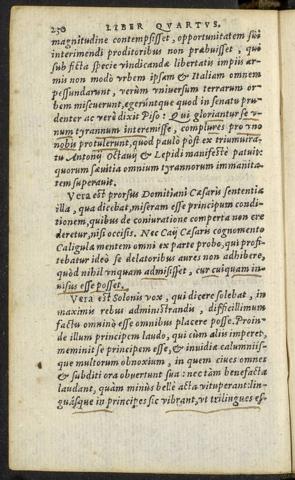 230 LIBER QVARTVS.
magnitudine contempsisset, opportunitatem sui
interimendi proditoribus non præbuisset, qui
sub ficta specie vindicandæ libertatis impiis ar-
mis non modò vrbem ipsam & Italiam omnem
pessundarunt, verùm vniuersum terrarum or-
bem miscuerunt, egerúntque quod in senatu pru-
denter ac verè dixit Piso: Qui gloriantur se v-
num tyrannum interemisse, complures pro vno
nobis protulerunt, quod paulò pòst ex triumuira-
tu Antonij Octauij & Lepidi manifestè patuit:
quorum sæuitia omnium tyrannorum immanita-
tem superauit.
Vera est prorsus Domitiani Cæsaris sententia
illa, qua dicebat, miseram esse principum condi-
tionem, quibus de coniuratione comperta non cre
deretur, nisi occisis. Nec Caij Cæsaris cognomento
Caligulæ mentem omni ex parte probo, qui profi-
tebatur ideò se delatoribus aures non adhibere,
quòd nihil vnquam admisisset, cur cuiquam in-
uisus esse posset.
Vera est Solonis vox, qui dicere solebat, in
maximis rebus administrandis, difficillimum
factu omnino esse omnibus placere posse. Proin-
de illum principem laudo, qui cùm aliis imperet,
meminit se principem esse, & inuidiæ calumniis-
que multorum obnoxium, in quem ciues omnes
& subditi ora obuertunt sua: nec tàm benefacta
laudant, quàm minùs bellè acta vituperant: lin-
guásque in principes sic vibrant, vt trilingues es-